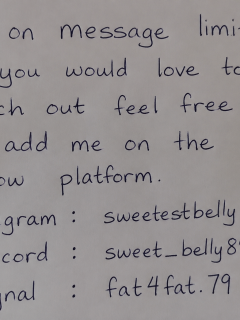 on message limi
you would love to
ch out feel free
add me on the
ow platform.
gram : sweetestbelly
cord : sweet_belly8
nal : fat4fat.79